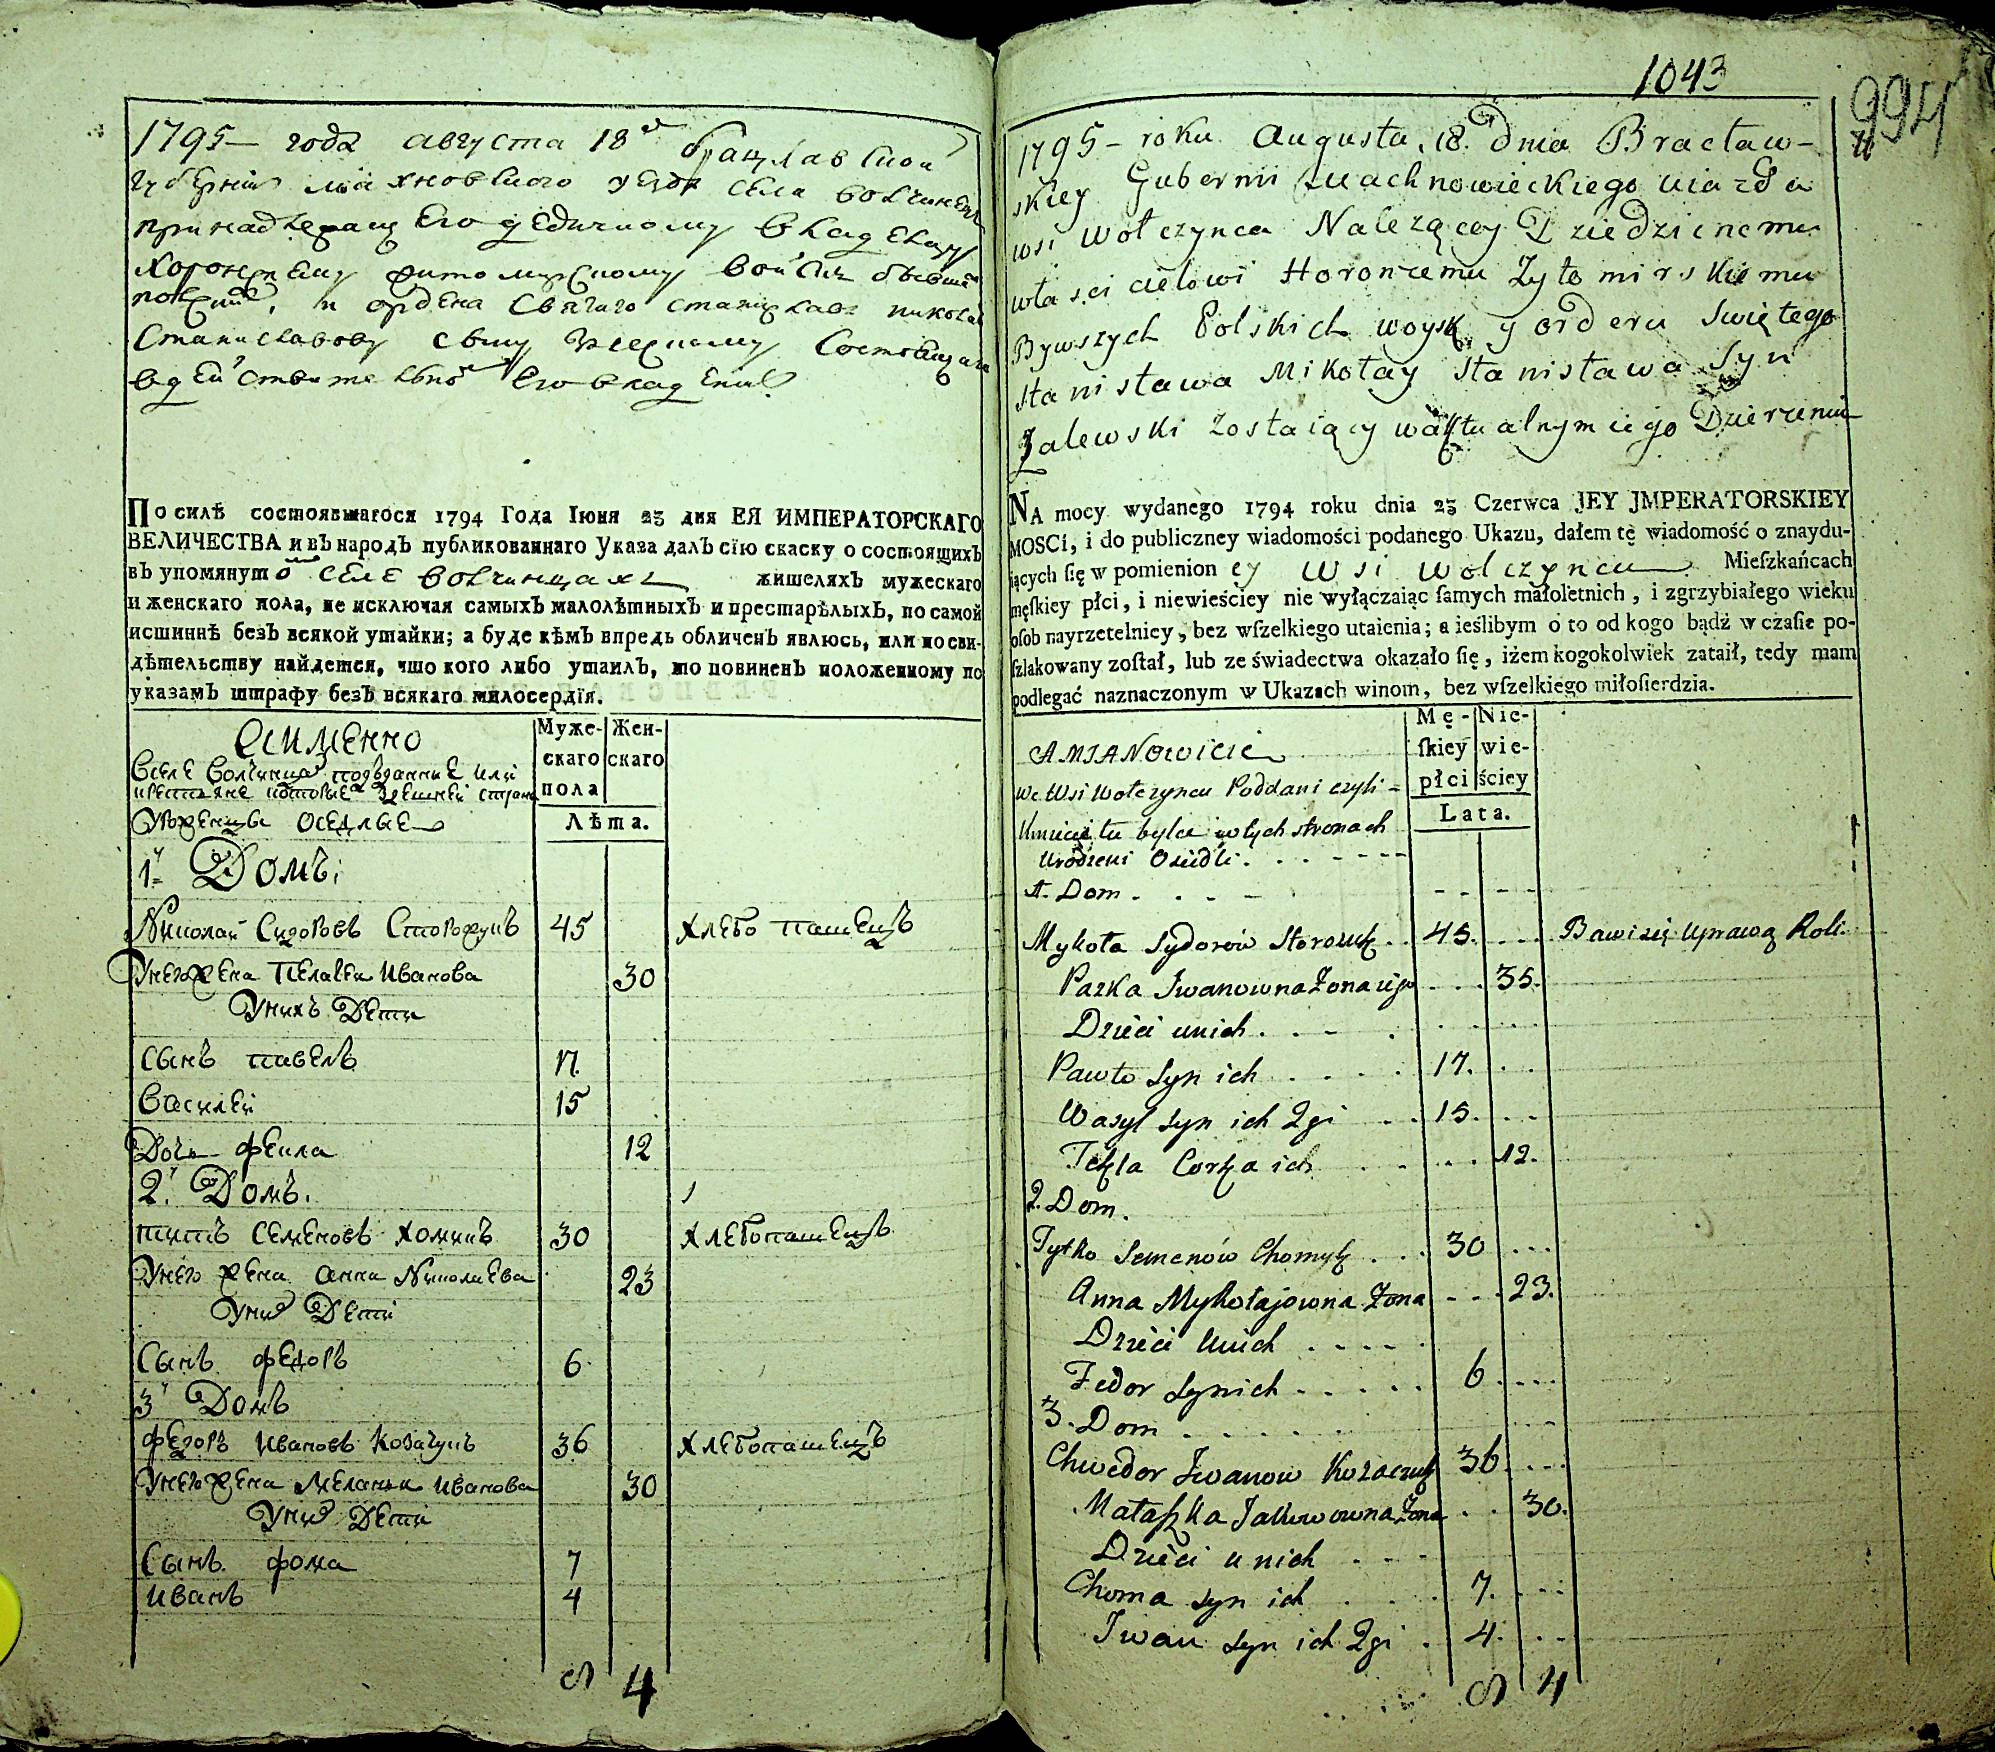 1795 – года августа 18 брацлавской
губернии махновского уезда села волчинец
принадлежащего дедичному владельцу
Хоронжему житомирскому войск бывших
польских, и ордена Святаго станислава николай
Станиславову сыну Состоящаго
в действительном его владении
По силѣ состоявшагося 1794 Года Iюня 23 дня ЕЯ ИМПЕРАТОРСКАГО
ВЕЛИЧЕСТВА и въ народъ публикованнаго Указа далъ сїю скаску о состоящихъ
въ упомянутомъ селе волчинцахъ жителяхъ мужескаго
и женскаго пола, не исключая самыхъ малолѣтныхъ и престарѣлыхъ, по самой
истиннѣ безъ всякой утайки; а буде кѣмъ впредь обличенъ явлюсь, или по сви-
дѣтельству найдется, что кого либо утаилъ, то повиненъ положенному по
указамъ штрафу безъ всякаго милосердїя.
Муже- Жен-
скаго скаго
пола
Лѣта.
А имЕнно
в селе волчинцах подданние или
крестьяне которые здешней страны
Уроженцы оседлые
1й Домъ:
Николай Сидоровъ Сторожукъ 45 хлебопашецъ
У него жена Пелагея Иванова 30
У нихъ Дети
Сынъ павелъ 17.
Василей 15
Дочь фекла 12
2й Домъ.
титъ Семеновъ хомикъ 30 хлебопашецъ
У него жена анна Николаева 23
У них Дети
Сынъ федоръ 6.
3й Домъ
федоръ Ивановъ Козачукъ 36 хлебопашецъ
У него жена Меланья иванова 30
У них Дети
Сынъ фома 7
иванъ 4
6 4
1043
994
1795 – roku Augusta 18. Dnia Bracław-
skiey Gubernii Machnowieckiego uiazda
wsi Wołczynca Nalezącey Dziedzicnemu
własci cielowi Horonzemu Zytomirskiemu
Bywszych Polskich woysk y orderu Swiętego
Stanisława Mikołay Stanisława Syn
Zalewski zostaiący waktualnym iego Dzierzeniu
NA mocy wydanego 1794 roku dnia 23 Czerwca JEY JMPERATORSKIEY
MOSCi, i do publiczney wiadomości podanego Ukazu, dałem tę wiadomość o znaydu-
iących ſię w pomienioney Wsi Wolczyncu Mieſzkańcach
męſkiey płci, i niewieściey nie wyłączaiąc ſamych małoletnich, i zgrzybiałego wieku
oſob nayrzetelniey, bez wſzelkiego utaienia; a ieślibym o to od kogo bądź w czaſie po-
ſzlakowany zoſtał, lub ze świadectwa okazało ſię, iżem kogokolwiek zataił, tedy mam
podlegać naznaczonym w Ukazach winom, bez wſzelkiego miłoſierdzia.
Mę- Nie-
ſkiey wie-
płci ściey
Lata.
A MIANOwicie
We Wsi Wołczyncu Poddani czyli -
Kmiecie tu bylce w tych stronach
urodzeni Osiedli
1. Dom
Mykoła Sydorów Storozuk 45. Bawi się Uprawą Roli
Pazka Iwanowna Zona iego 35.
Dzieci u nich
Pawło Syn ich 17.
Wasyl Syn ich 2gi 15.
Tekla Corka ich 12.
2. Dom.
Tytko Semenów Chomyk 30
Anna Mykołajowna Zona 23.
Dzieci u nich
Fedor Syn ich 6
3. Dom
Chwedor Iwanow Kozaczuk 36
Małaszka Zona 30.
Dzieci u nich
Choma Syn ich 7.
Iwan Syn ich 2gi 4.
6 4